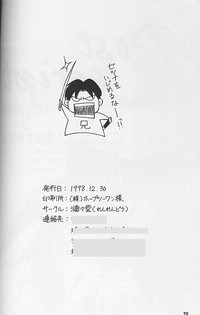 セツナを
いじめるなーッ!!
兄
発行日: 1998.12.30
印刷所: (株)ホープツーワン様
サークル: 漣々堂(れんれんどう)
連絡先:
25